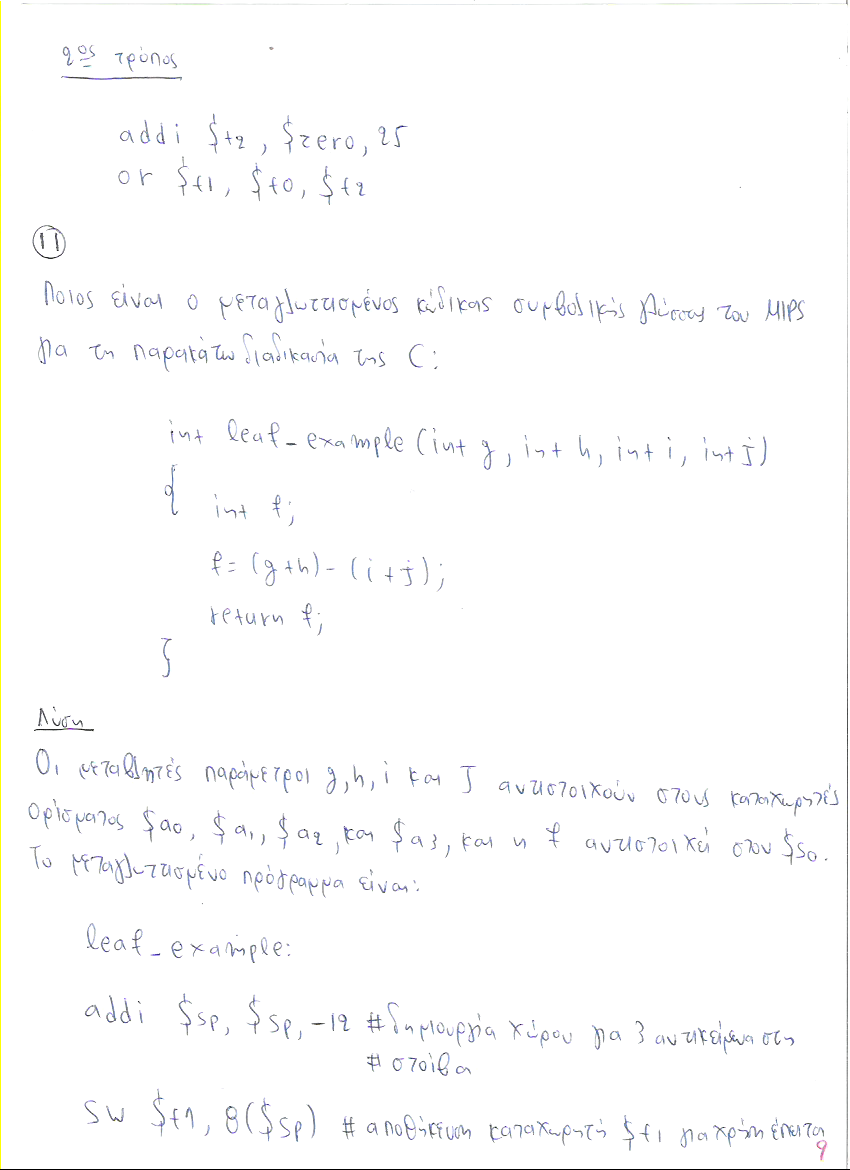 2ος τρόπος
addi $t2, $zero, 25
or $t1, $t0, $t2
11
Ποιος είναι ο μεταγλωττισμένος κώδικας συμβολικής γλώσσας του MIPS
για τη παρακάτω διαδικασία της C:
int leaf_example (int g, int h, int i, int j)
{
int f;
f = (g+h) - (i+j);
return f;
}
Λύση
Οι μεταβλητές παράμετροι g, h, i και J αντιστοιχούν στους καταχωρητές
ορίσματος $a0, $a1, $a2, και $a3, και η f αντιστοιχεί στον $s0.
Το μεταγλωττισμένο πρόγραμμα είναι:
leaf_example:
addi $sp, $sp, -12 #δημιουργία χώρου για 3 αντικείμενα στη
# στοίβα
sw $t1, 8($sp) # αποθήκευση καταχωρητή $t1 για χρήση έπειτα
9